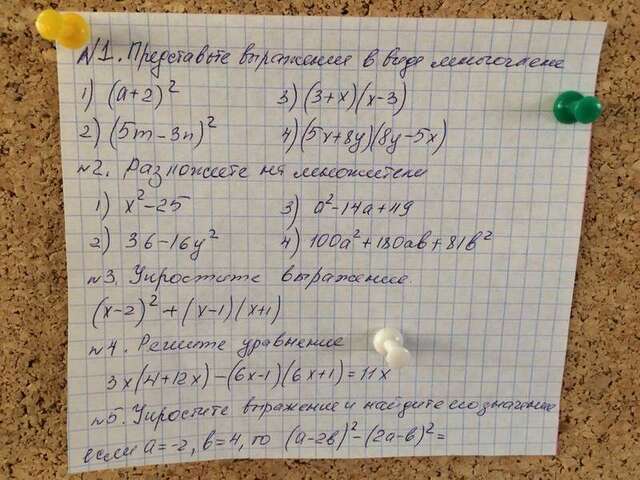 №1. Представьте выражение в виде многочлена
1) (a+2)² 3) (3+x)(x-3)
2) (5m-3n)² 4) (5x+8y)(8y-5x)
№2. Разложите на множители
1) x²-25 3) a²-14a+49
2) 36-16y² 4) 100a²+180ab+81b²
№3. Упростите выражение.
(x-2)²+(x-1)(x+1)
№4. Решите уравнение
3x(4+12x)-(6x-1)(6x+1)=11x
№5. Упростите выражение и найдите его значение
если a=-2, b=4, то (a-2b)²-(2a-b)²=